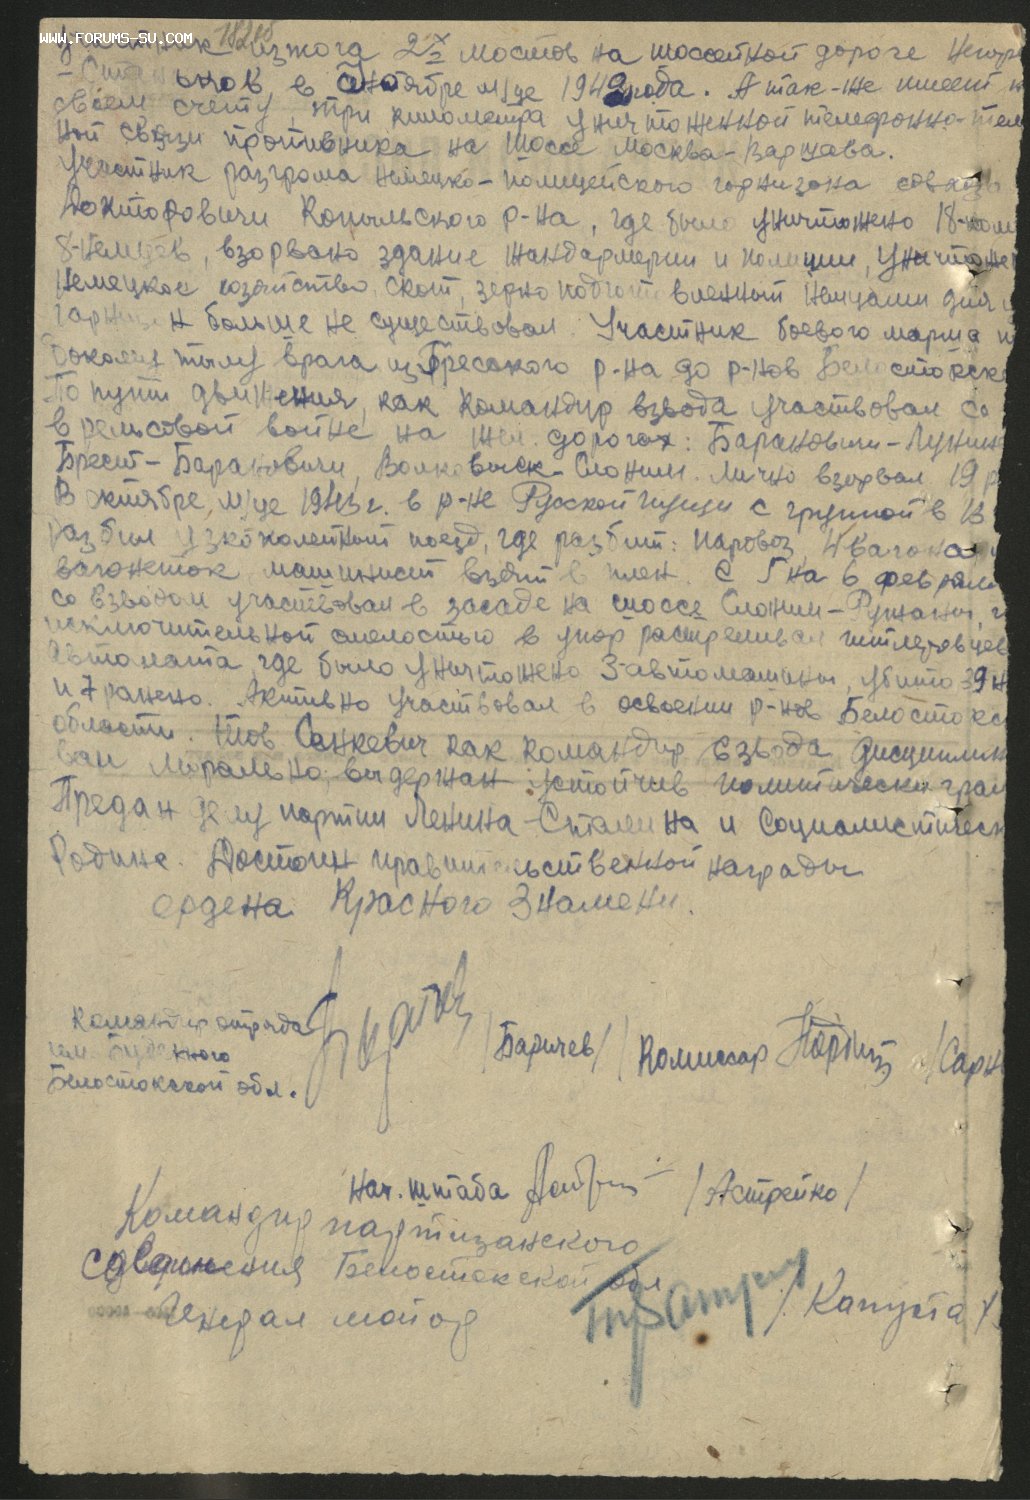 www.forums-su.com
18205
Участник изжога 2х мостов на шоссейной дороге
в Октябре м/це 1942 года. А так-же имеет
своем счету, три километра уничтоженной телефонно-
ной связи противника на шоссе Москва-Варшава.
Участник разгрома немецко-полицейского горнизона
Докторовичи Копыльского р-на, где было уничтожено 18-
8-немцев, взорвано здание жандармерии и полиции,
немецкое хозяйство, скот, зерно подготовленной немцами для
больше не существовал. Участник боевого марша
тылу врага из Бреского р-на до р-нов
По пути движения, как командир взвода участвовал со
в рельсовой войне на жел. дорогах: Барановичи-
Брест-Барановичи, Волковыск-Слоним. Лично взорвал 19
В октябре м/це 1943 г. в р-не Ружской пущи с группой в 13
разбил узкоколейной поезд, где разбит: паровоз, 4 вагона
вагонеток, машинист взят в плен. С 5 на 6 февраля
со взводом участвовал в засаде на шоссе Слоним-Ружаны,
исключительной смелостью в упор растреливал гитлеровцев
автомата, где было уничтожено 3-автомашины, убито 39
и 7 ранено. Активно участвовал в освоении р-нов Белостокс
области. Тов Санкевич как командир взвода дисциплин
ван морально, выдержан устойчив политически грам
Предан делу партии Ленина-Сталина и Социалистическ
Родине. Достоин правительственной награды
ордена Красного Знамени.
Командир отряда
им. Буденного
Белостокской обл.
/Баричев/
/Комиссар
/Сарн
Нач. штаба
/Астрейко/
Командир партизанского
соединения Белостокской обл
Генерал майор
/Капуста/